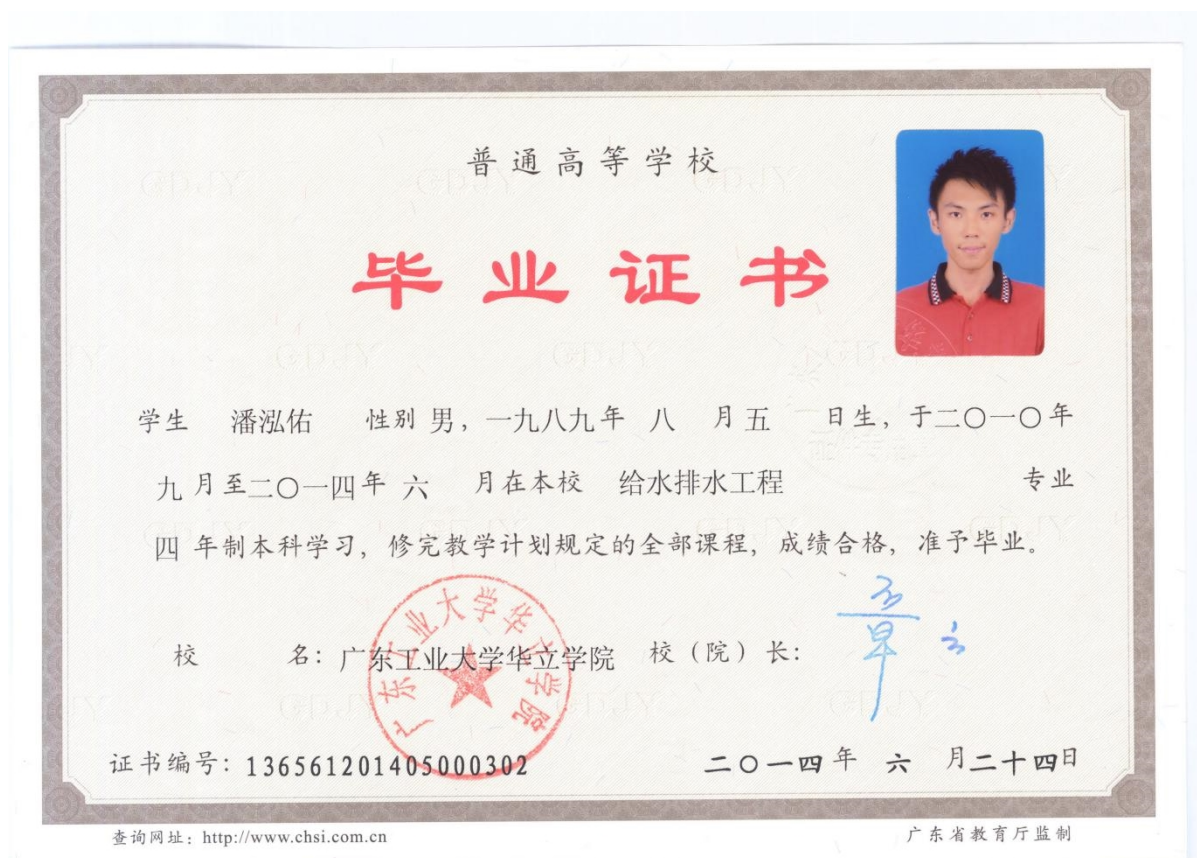 普通高等学校
毕业证书
学生 潘泓佑 性别 男，一九八九年 八 月 五 日生，于二〇一〇年
九 月至二〇一四年 六 月在本校 给水排水工程 专业
四 年制本科学习，修完教学计划规定的全部课程，成绩合格，准予毕业。
校 名：广东工业大学华立学院 校（院）长：
广东工业大学华立学院
证书编号：136561201405000302 二〇一四年 六 月二十四日
查询网址：http://www.chsi.com.cn 广东省教育厅监制